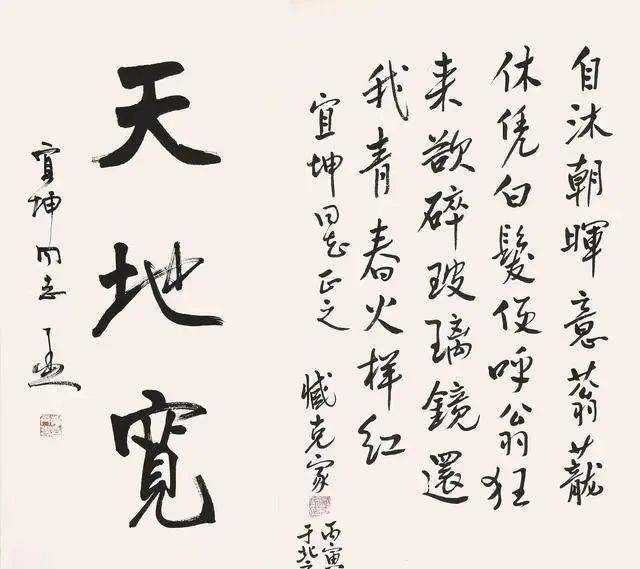 自沐朝暉意蓊蘢
休凭白髮便呼翁狂
来欲碎玻璃鏡還
我青春火样红
宜坤同志正之
臧克家
丙寅
于北
天地寬
宜坤同志